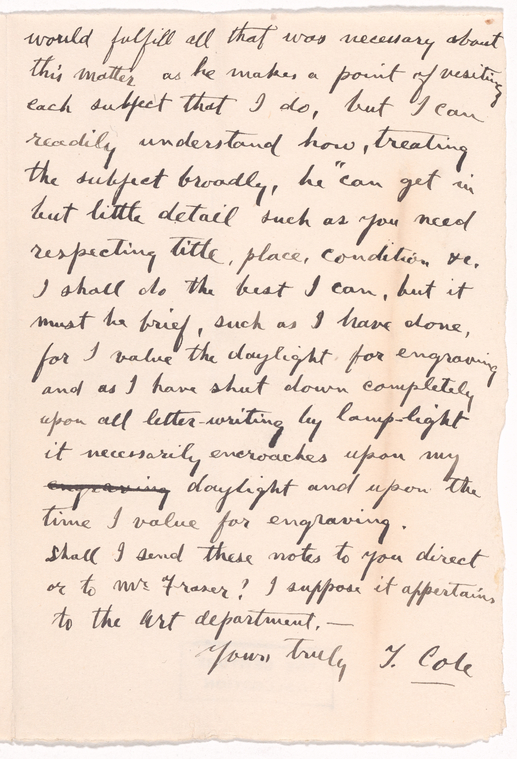 would fulfill all that was necessary about
this matter as he makes a point of visiting
each subject that I do, but I can
readily understand how, treating
the subject broadly, he "can get in
but little detail such as you need
respecting title, place, condition &c.
I shall do the best I can, but it
must be brief, such as I have done,
for I value the daylight for engraving
and as I have shut down completely
upon all letter-writing by lamp-light
it necessarily encroaches upon my
engraving daylight and upon the
time I value for engraving.
Shall I send these notes to you direct
or to Mr Fraser? I suppose it appertains
to the Art department.—
Yours truly T. Cole